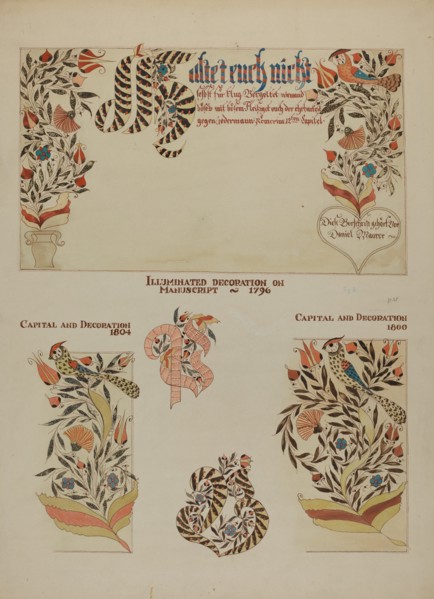 Haltet euch nicht
selbst für klug. Vergeltet niemand
böses mit bösem. Fleissigst euch der ehrbarkeit
gegen jedermann. Römer im 12ten Capitel.
Diese Vorschrift gehöret
Daniel Maurer
ILLUMINATED DECORATION ON
MANUSCRIPT ~ 1796
CAPITAL AND DECORATION
1804
CAPITAL AND DECORATION
1800